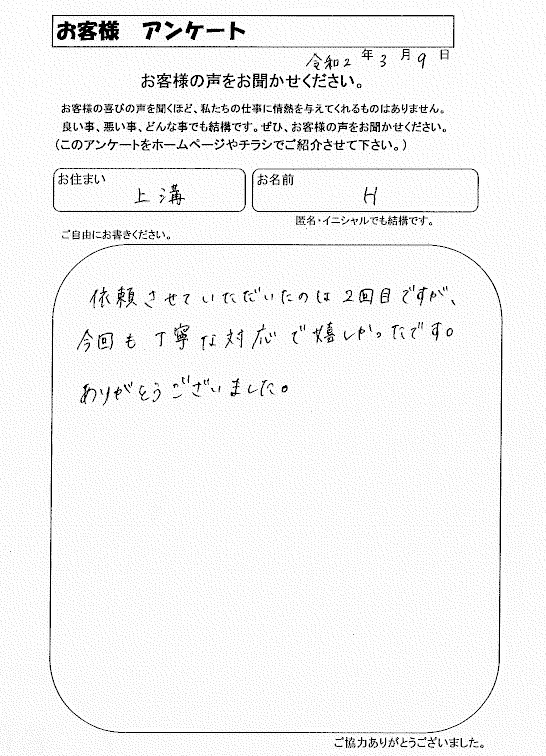 お客様　アンケート
令和2年3月9日
お客様の声をお聞かせください。
お客様の喜びの声を聞くほど、私たちの仕事に情熱を与えてくれるものはありません。
良い事、悪い事、どんな事でも結構です。ぜひ、お客様の声をお聞かせください。
（このアンケートをホームページやチラシでご紹介させて下さい。）
お住まい 上溝
お名前 H
匿名・イニシャルでも結構です。
ご自由にお書きください。
依頼させていただいたのは2回目ですが、
今回も丁寧な対応で嬉しかったです。
ありがとうございました。
ご協力ありがとうございました。